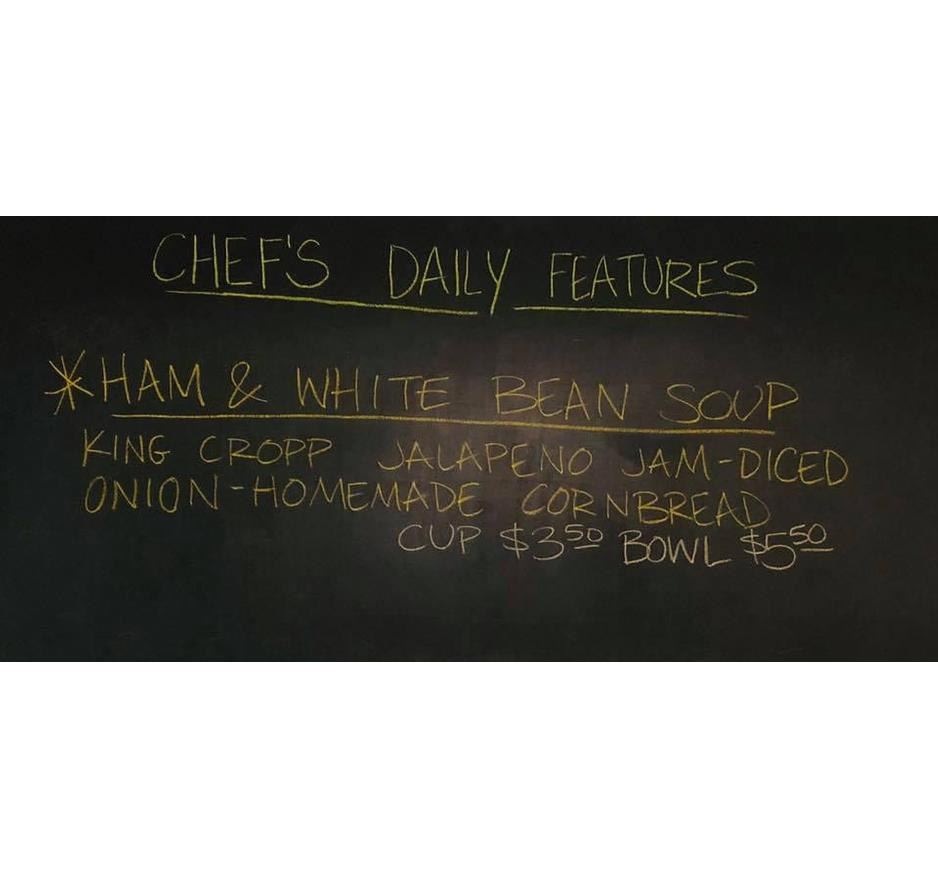 CHEF'S DAILY FEATURES
*HAM & WHITE BEAN SOUP
KING CROPP JALAPENO JAM-DICED
ONION-HOMEMADE CORNBREAD
CUP $3.50 BOWL $5.50